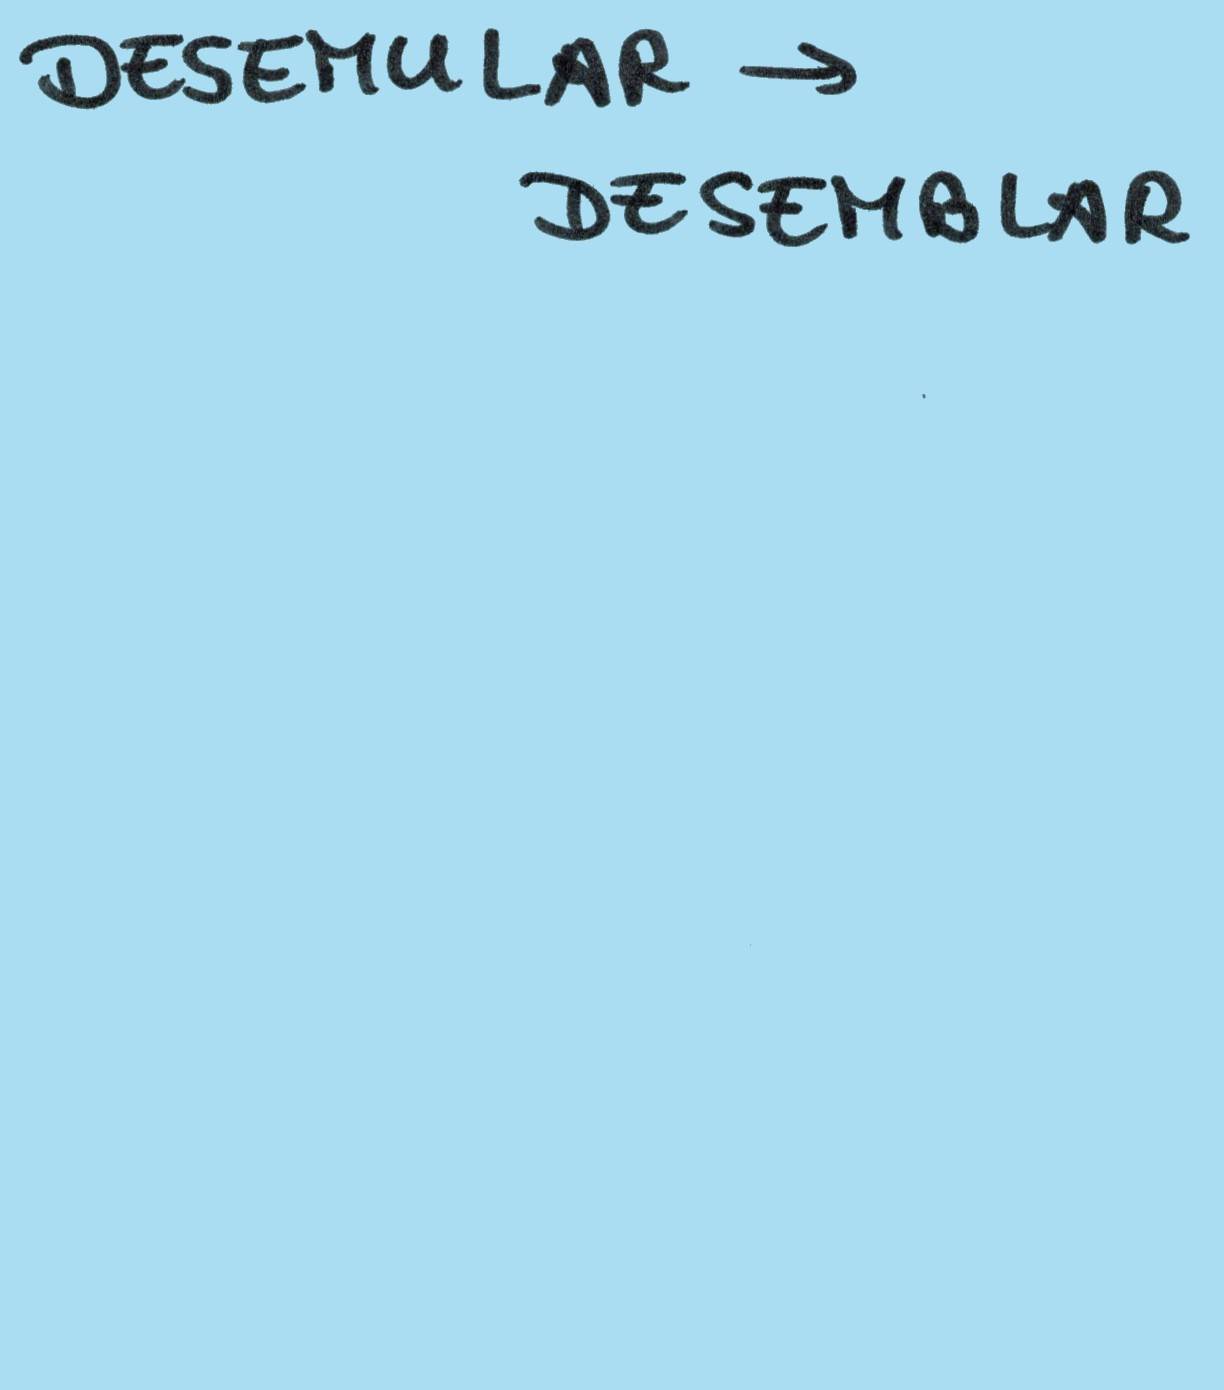 DESEMULAR →
DESEMBLAR